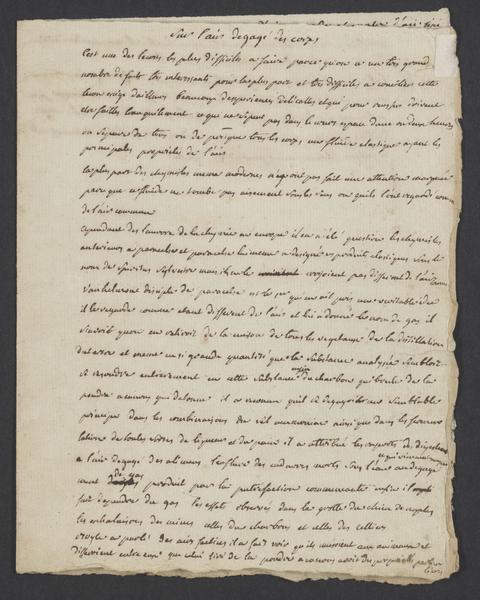 Sur l'air degagé des corps
C'est une des lecons les plus difficiles a faire parce qu'on a un tres grand
nombre de faits tres interessants pour la plus part et tres difficiles a concilier cette
lecon exige d'ailleurs beaucoup d'experiences delicates et qui pour reussir doivent
etre faites tranquillement et que ne depuis pas dans le court espace d'une ou deux heures
on separe de tous ou de presque tous les corps un fluide elastique ayant les
principales proprietés de l'air
la plus part des chymistes meme modernes n'y ont pas fait une attention marquée
parce que ce fluide ne tombe pas aisement sous les sens ou qu'ils l'ont regardé comme
de l'air commun
Cependant des l'aurore de la chymie en europe il en a été question les chymistes
anterieurs a paracelse et paracelse lui meme a designé ces produits elastiques sous le
nom de spiritus sylvestre mais ils ne le croyoient pas different de l'air commun
Vanhelmont disciple de paracelse est le 1er qui en ait pris une veritable idée
il le regarde comme etant different de l'air et lui a donné le nom de gas il
scavoit qu'on en retiroit de la maison de tous les vegetaux de la distillation
du tartre et meme en si grande quantité que la substance analysée sembloit
se resoudre entierement en cette substance enfin du charbon qui brule de la
poudre a canon qui detonne il a reconnu qu'il se degageoit un semblable
principe dans les combinaisons du sel mercuriaux ainsi que dans les fermen
tation de toutes sortes de liqueurs et du pain il a attribué les rapports des digestions
a l'air degagé des alimens l'enflure des cadavres morts sous l'eau au degage
ment de gas produit pour la putrefaction commencante enfin il
fait dependre du gas les effets observés dans la grotte du chien de naples
les exhalaisons des mines celles du charbon et celles des celliers
Boyle a parlé des airs factices il a fait voir qu'ils nuisoient aux animaux et
differoient entre eux que celui tiré de la poudre a canon avoit des proprietés particu
lieres